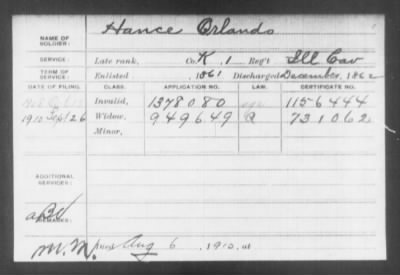 NAME OF SOLDIER: Hance Orlando
SERVICE: Late rank, Co. K, 1 Reg't Ill Cav
TERM OF SERVICE: Enlisted 1861 Discharged December, 1862
DATE OF FILING. CLASS. APPLICATION NO. LAW. CERTIFICATE NO.
Invalid, 1378080 1156444
1910 Sept 26 Widow, 949649 B 731062
Minor,
ADDITIONAL SERVICES:
REMARKS:
M.M. Died Aug 6, 1910, at